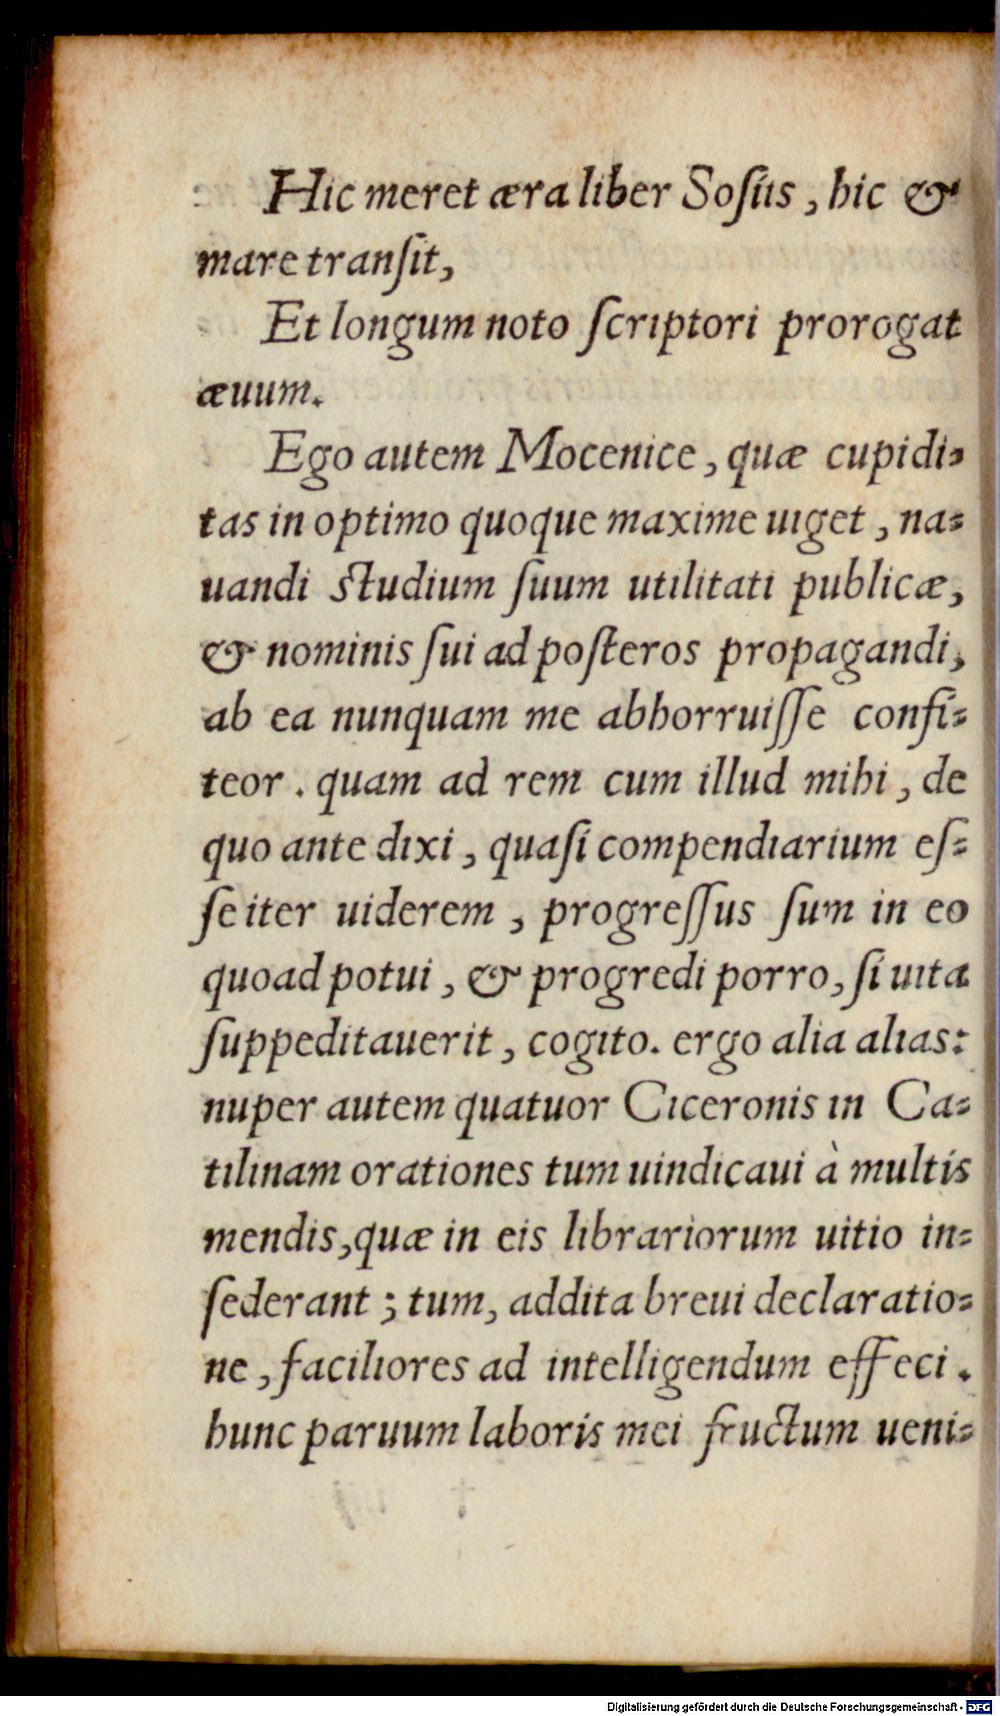 Hic meret æra liber Soſiis, hic &
mare tranſit,
Et longum noto ſcriptori prorogat
æuum.
Ego autem Mocenice, quæ cupidi-
tas in optimo quoque maxime uiget, na-
uandi ſtudium ſuum utilitati publicæ,
& nominis ſui ad poſteros propagandi,
ab ea nunquam me abhorruiſſe confi-
teor. quam ad rem cum illud mihi, de
quo ante dixi, quaſi compendiarium eſ-
ſe iter uiderem, progreſſus ſum in eo
quoad potui, & progredi porro, ſi uita
ſuppeditauerit, cogito. ergo alia alias:
nuper autem quatuor Ciceronis in Ca-
tilinam orationes tum uindicaui à multis
mendis, quæ in eis librariorum uitio in-
ſederant; tum, addita breui declaratio-
ne, faciliores ad intelligendum effeci.
hunc paruum laboris mei fructum ueni-
Digitalisierung gefördert durch die Deutsche Forschungsgemeinschaft - DFG